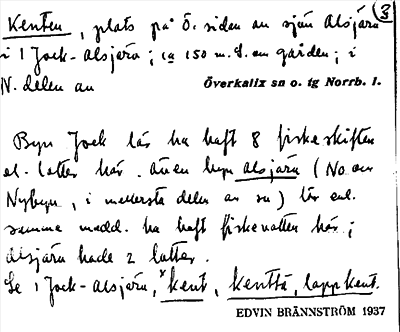 Kenten, plats på Ö. sidan av sjön Alsjärv (3)
i 1 Jock-Alsjärv; ca 150 m. S. om gården; i
N. delen av Överkalix sn o. tg Norrb. l.
Byn Jock lär ha haft 8 fiskeskiften
el. lotter här. Även byn Alsjärv (No om
Nybyn, i mellersta delen av sn) lär enl.
samme medd. ha haft fiskevatten här;
Alsjärv hade 2 lotter.
Se 1 Jock-Alsjärv, *kent, kenttä, lappkent.
EDVIN BRÄNNSTRÖM 1937